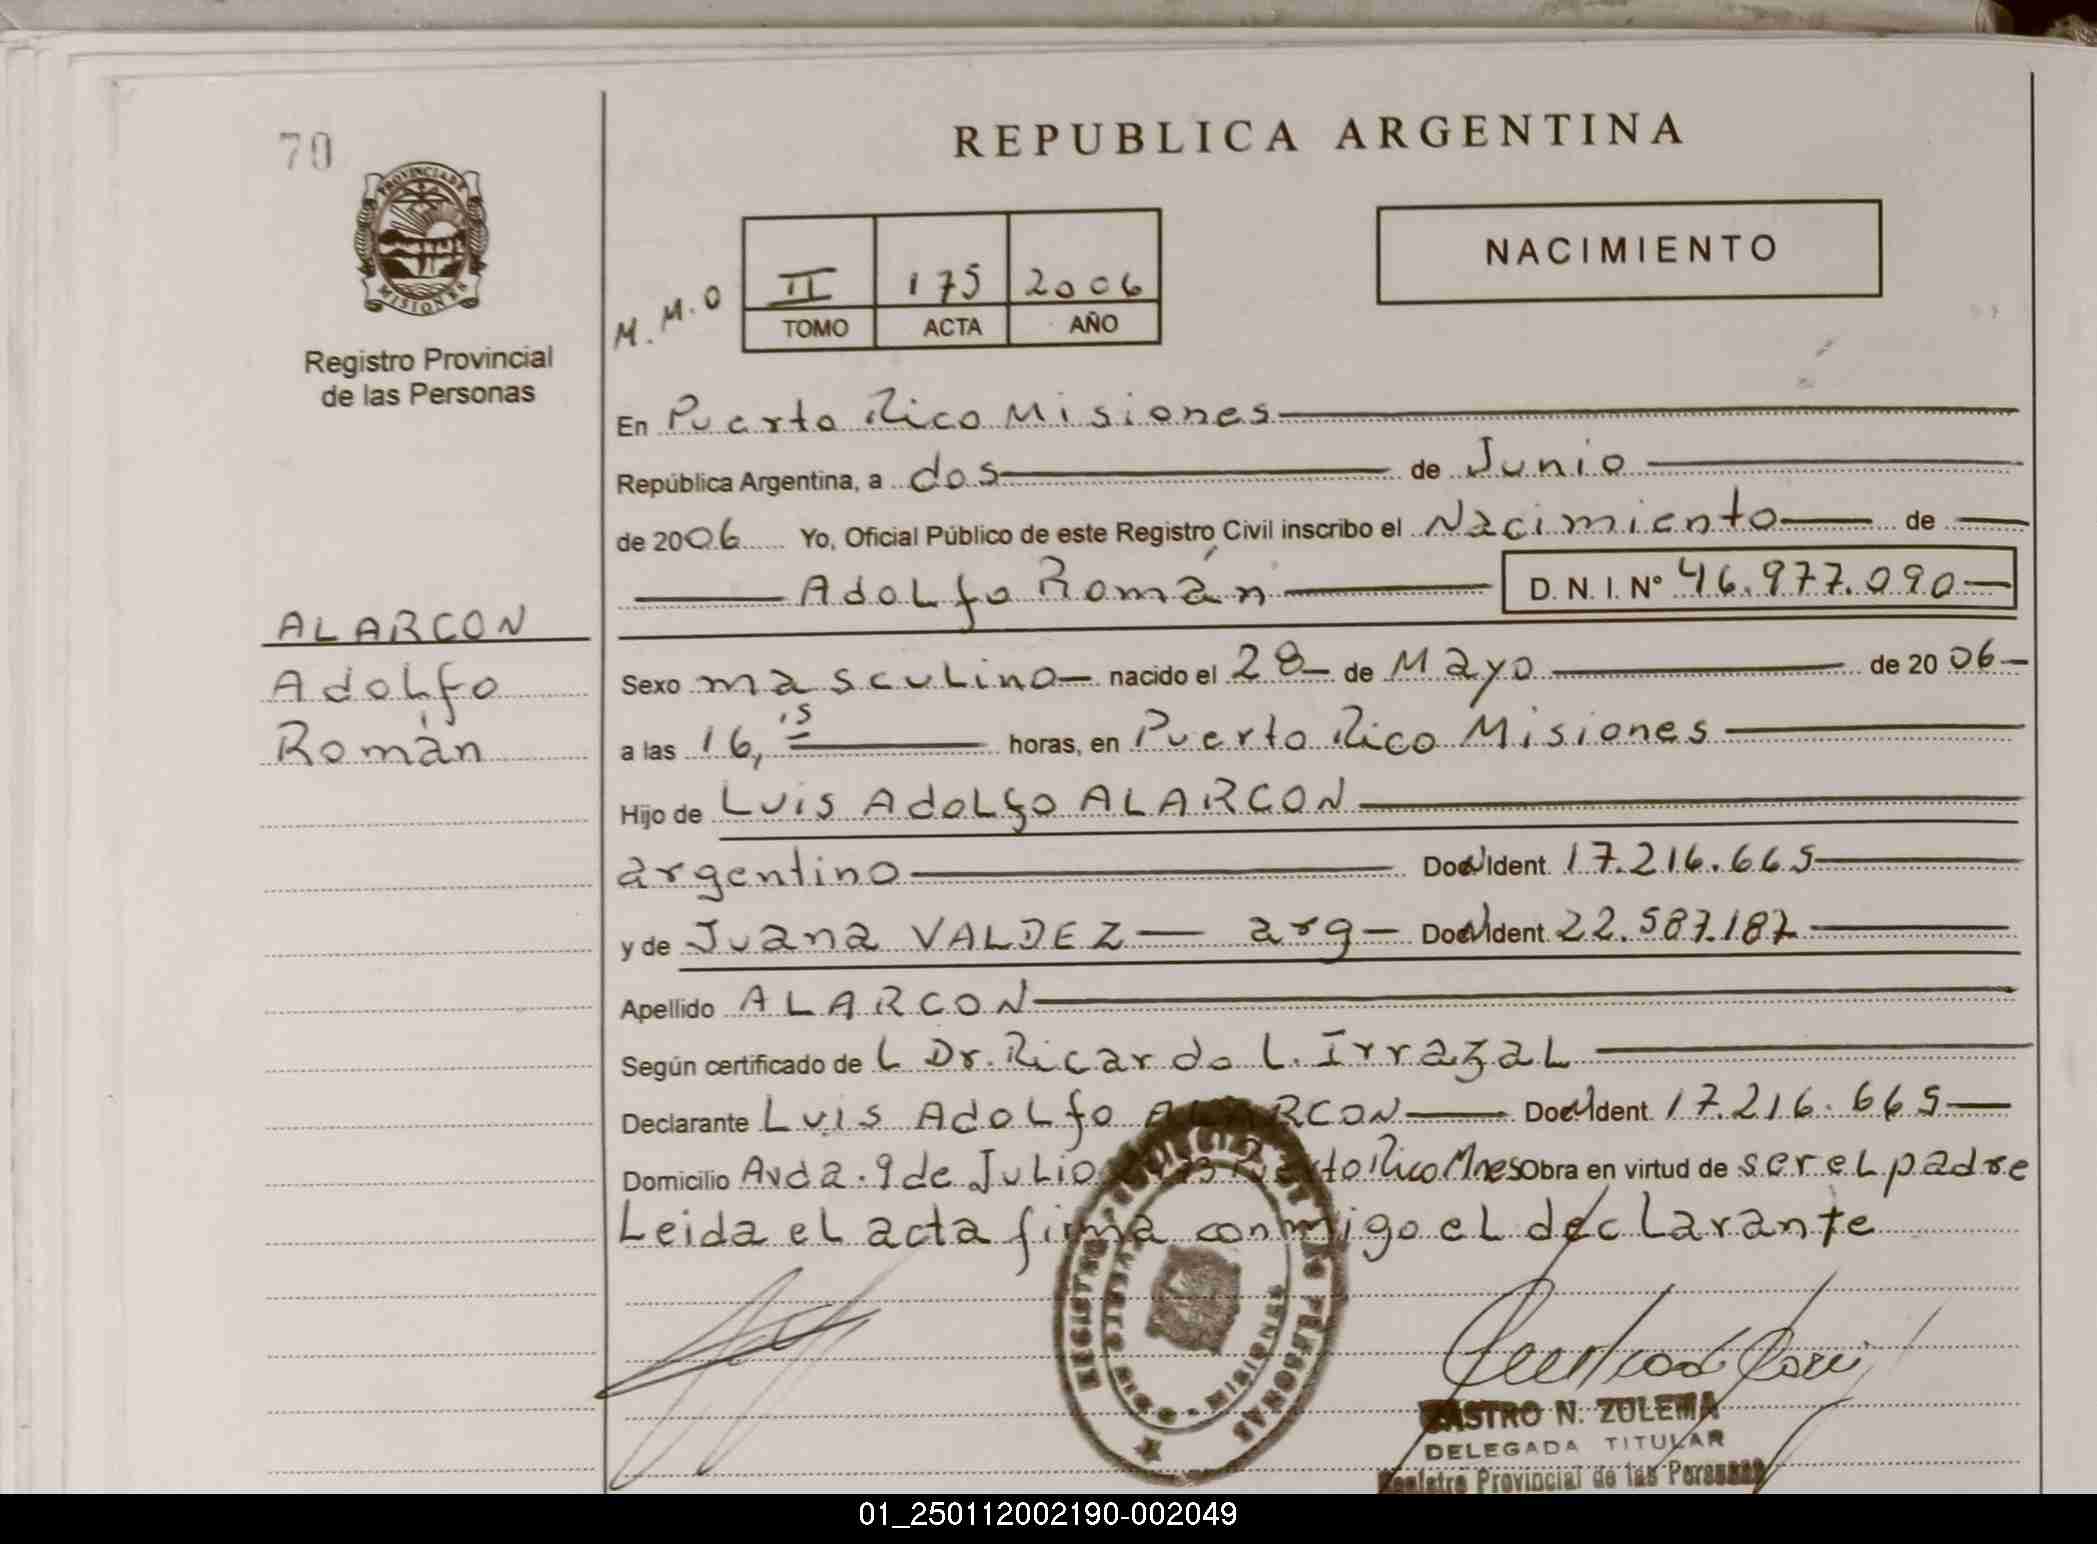 70
REPUBLICA ARGENTINA
PROVINCIA DE
MISIONES
NACIMIENTO
II 175 2006
M.M.O
TOMO ACTA AÑO
Registro Provincial
de las Personas
En Puerto Rico Misiones
República Argentina, a dos de Junio
de 2006 Yo, Oficial Público de este Registro Civil inscribo el Nacimiento de
Adolfo Román D. N. I. Nº 46.977.090
ALARCON
Adolfo
Román
Sexo masculino nacido el 28 de Mayo de 20 06
a las 16,15 horas, en Puerto Rico Misiones
Hijo de Luis Adolfo ALARCON
argentino Doc Ident. 17.216.665
y de Juana VALDEZ arg Doc Ident. 22.587.187
Apellido ALARCON
Según certificado de L Dr. Ricardo L. Irrazal
Declarante Luis Adolfo ALARCON Doc Ident. 17.216.665
Domicilio Avda. 9 de Julio Puerto Rico Mnes Obra en virtud de ser el padre
Leida el acta firma conmigo el declarante
REGISTRO PERSONAS
MISIONES
CASTRO N. ZULEMA
DELEGADA TITULAR
Registro Provincial de las Personas
01_250112002190-002049